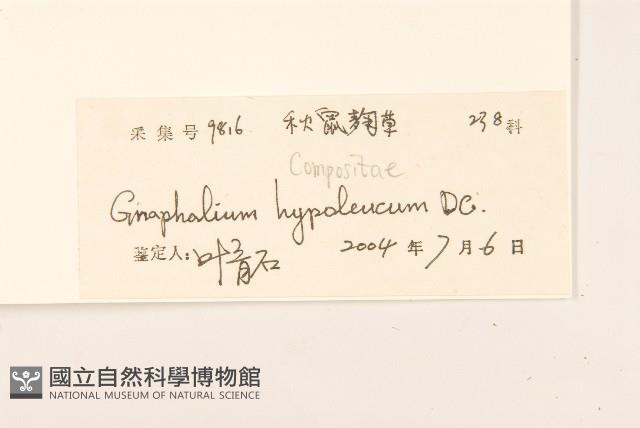 采集号 9816 秋鼠麴草 238科
Compositae
Gnaphalium hypoleucum DC.
鉴定人: 叶育石 2004 年 7 月 6 日
國立自然科學博物館
NATIONAL MUSEUM OF NATURAL SCIENCE